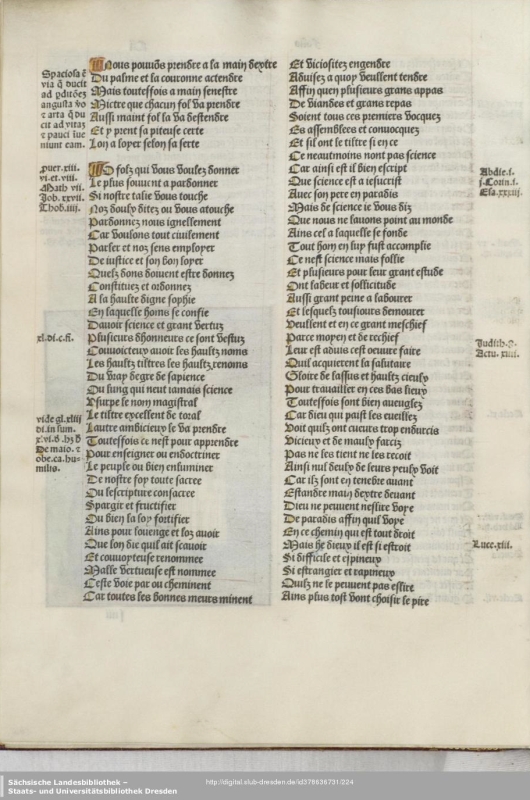 Spaciosa ē
via q̄ ducit
ad ꝑditōeȝ
angusta v̄o
⁊ arta q̄ du
cit ad vitaȝ
⁊ pauci īue
niunt eam.
puer. xiii.
vi. et. viii.
Math vii.
Job. xxvii.
Thob. iiii.
xl. di. c. fi.
vide gl. xliii
di. in sum.
De maio. ⁊
obe. ca. hu-
milis.
Nous pouuōs prendre a la main dextre
Du palme et la couronne actendre
Mais toutesfois a main senestre
Mictre que chacun fol va prendre
Aussi maint fol la va destendre
Et y prent sa piteuse certe
Lon a loyer selon sa serte
O folz qui vous voulez donner
Le plus souuent a pardonner
Si nostre talie vous touche
Noz douly ditez ou vous atouche
Pardonnez nous ignellement
Car voulons tout ciuilement
Parler et noz sens employer
De iustice et son bon loyer
Quelz dons doiuent estre donnez
Constituez et ordonnez
A la haulte digne sophie
En laquelle homs se confie
Dauoir science et grant vertuz
Plusieurs dhonneurs ce sont vestuz
Couuoicteux auoir les haultz noms
Les haultz tiltres les haultz renoms
Du vray degre de sapience
Ou lung qui neut iamais science
Vsurpe le nom magistral
Le tiltre excellent de toral
Lautre ambicieux le va prendre
Toutesfois ce nest pour apprendre
Pour enseigner ou endoctriner
Le peuple ou bien enluminer
De nostre foy toute sacree
Ou lescripture consacree
Spargir et fructifier
Ou bien la loy fortifier
Ains pour louenge et loz auoir
Que lon die quil ait scauoir
Et couuoyteuse renommee
Malle vertueuse est nommee
Ceste voie par ou cheminent
Car toutes les bonnes meurs minent
Et viciositez engendre
Aduisez a quoy veullent tendre
Affin quen plusieurs grans appas
De viandes et grans repas
Soient tous ces premiers vocquez
Es assemblees et conuocquez
Et sil ont le tiltre si en ce
Ce neautmoins nont pas science
Car ainsi est il bien escript
Que science est a iesucrist
Auec son pere en paradis
Mais de science ie vous diz
Que nous ne lauons point au monde
Ains cel a laquelle se fonde
Tout hom en luy fust accomplie
Ce nest science mais follie
Et plusieurs pour leur grant estude
Ont labeur et sollicitude
Aussi grant peine a labourer
Et lesquelz tousiours demourer
Veullent et en ce grant meschief
Parce moyen et de rechief
Leur est aduis cest oeuure faire
Quil acquierent la salutaire
Gloire de lassus et haultz cieulx
Pour trauailler en ces bas lieux
Toutesfois sont bien aueuglez
Car dieu qui paist les cueillez
Voit quilz ont cueurs trop endurcis
Vicieux et de maulx farciz
Pas ne les tient ne les recoit
Ainsi nul deulx de leurs yeulx voit
Car ilz sont en tenebre auant
Estandre main dextre deuant
Dieu ne peuuent neslire voye
De paradis affin quil voye
En ce chemin qui est tout droit
Mais he dieux il est si estroit
Si difficile et espineux
Si estrangier et rapineux
Quilz ne le peuuent pas eslire
Ains plus tost vont choisir le pire
Abdie. i.
i. Corin. i.
Esa. xxxiii.
Judith. 9.
Actu. xiiii.
Luce. xiii.
Sächsische Landesbibliothek –
Staats- und Universitätsbibliothek Dresden
http://digital.slub-dresden.de/id378636731/224